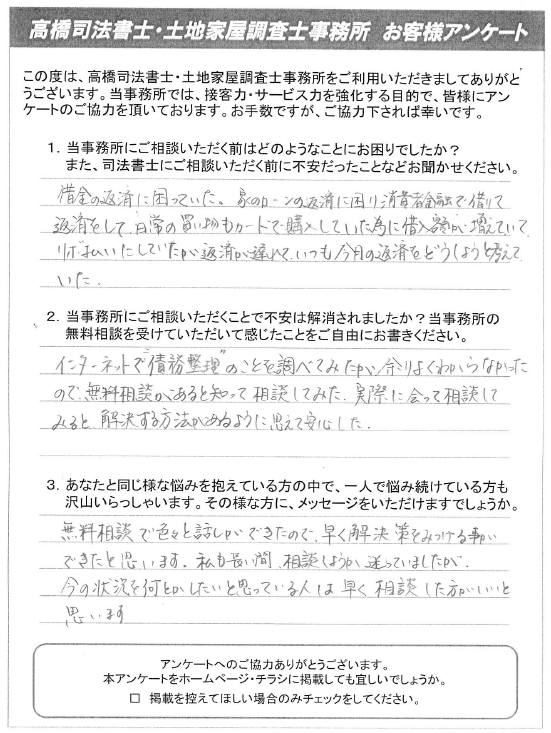 高橋司法書士・土地家屋調査士事務所 お客様アンケート
この度は、高橋司法書士・土地家屋調査士事務所をご利用いただきましてありがと
うございます。当事務所では、接客力・サービス力を強化する目的で、皆様にアン
ケートのご協力を頂いております。お手数ですが、ご協力下されば幸いです。
1. 当事務所にご相談いただく前はどのようなことにお困りでしたか?
また、司法書士にご相談いただく前に不安だったことなどお聞かせください。
借金の返済に困っていた。家のローンの返済に困り消費者金融で借りて
返済をして、日常の買い物もカードで購入していた為に借入額が増えていて
リボ払いにしていたが返済が遅れて、いつも今月の返済をどうしようと考えて
いた。
2. 当事務所にご相談いただくことで不安は解消されましたか?当事務所の
無料相談を受けていただいて感じたことをご自由にお書きください。
インターネットで"債務整理"のことを調べてみたが、余りよくわからなかった
ので、無料相談があると知って相談してみた。実際に会って相談して
みると、解決する方法があるように思えて安心した。
3. あなたと同じ様な悩みを抱えている方の中で、一人で悩み続けている方も
沢山いらっしゃいます。その様な方に、メッセージをいただけますでしょうか。
無料相談で色々と話しができたので、早く解決策をみつける事が
できたと思います。私も長い間、相談しようか迷っていましたが、
今の状況を何とかしたいと思っている人は早く相談した方がいいと
思います
アンケートへのご協力ありがとうございます。
本アンケートをホームページ・チラシに掲載しても宜しいでしょうか。
□ 掲載を控えてほしい場合のみチェックをしてください。